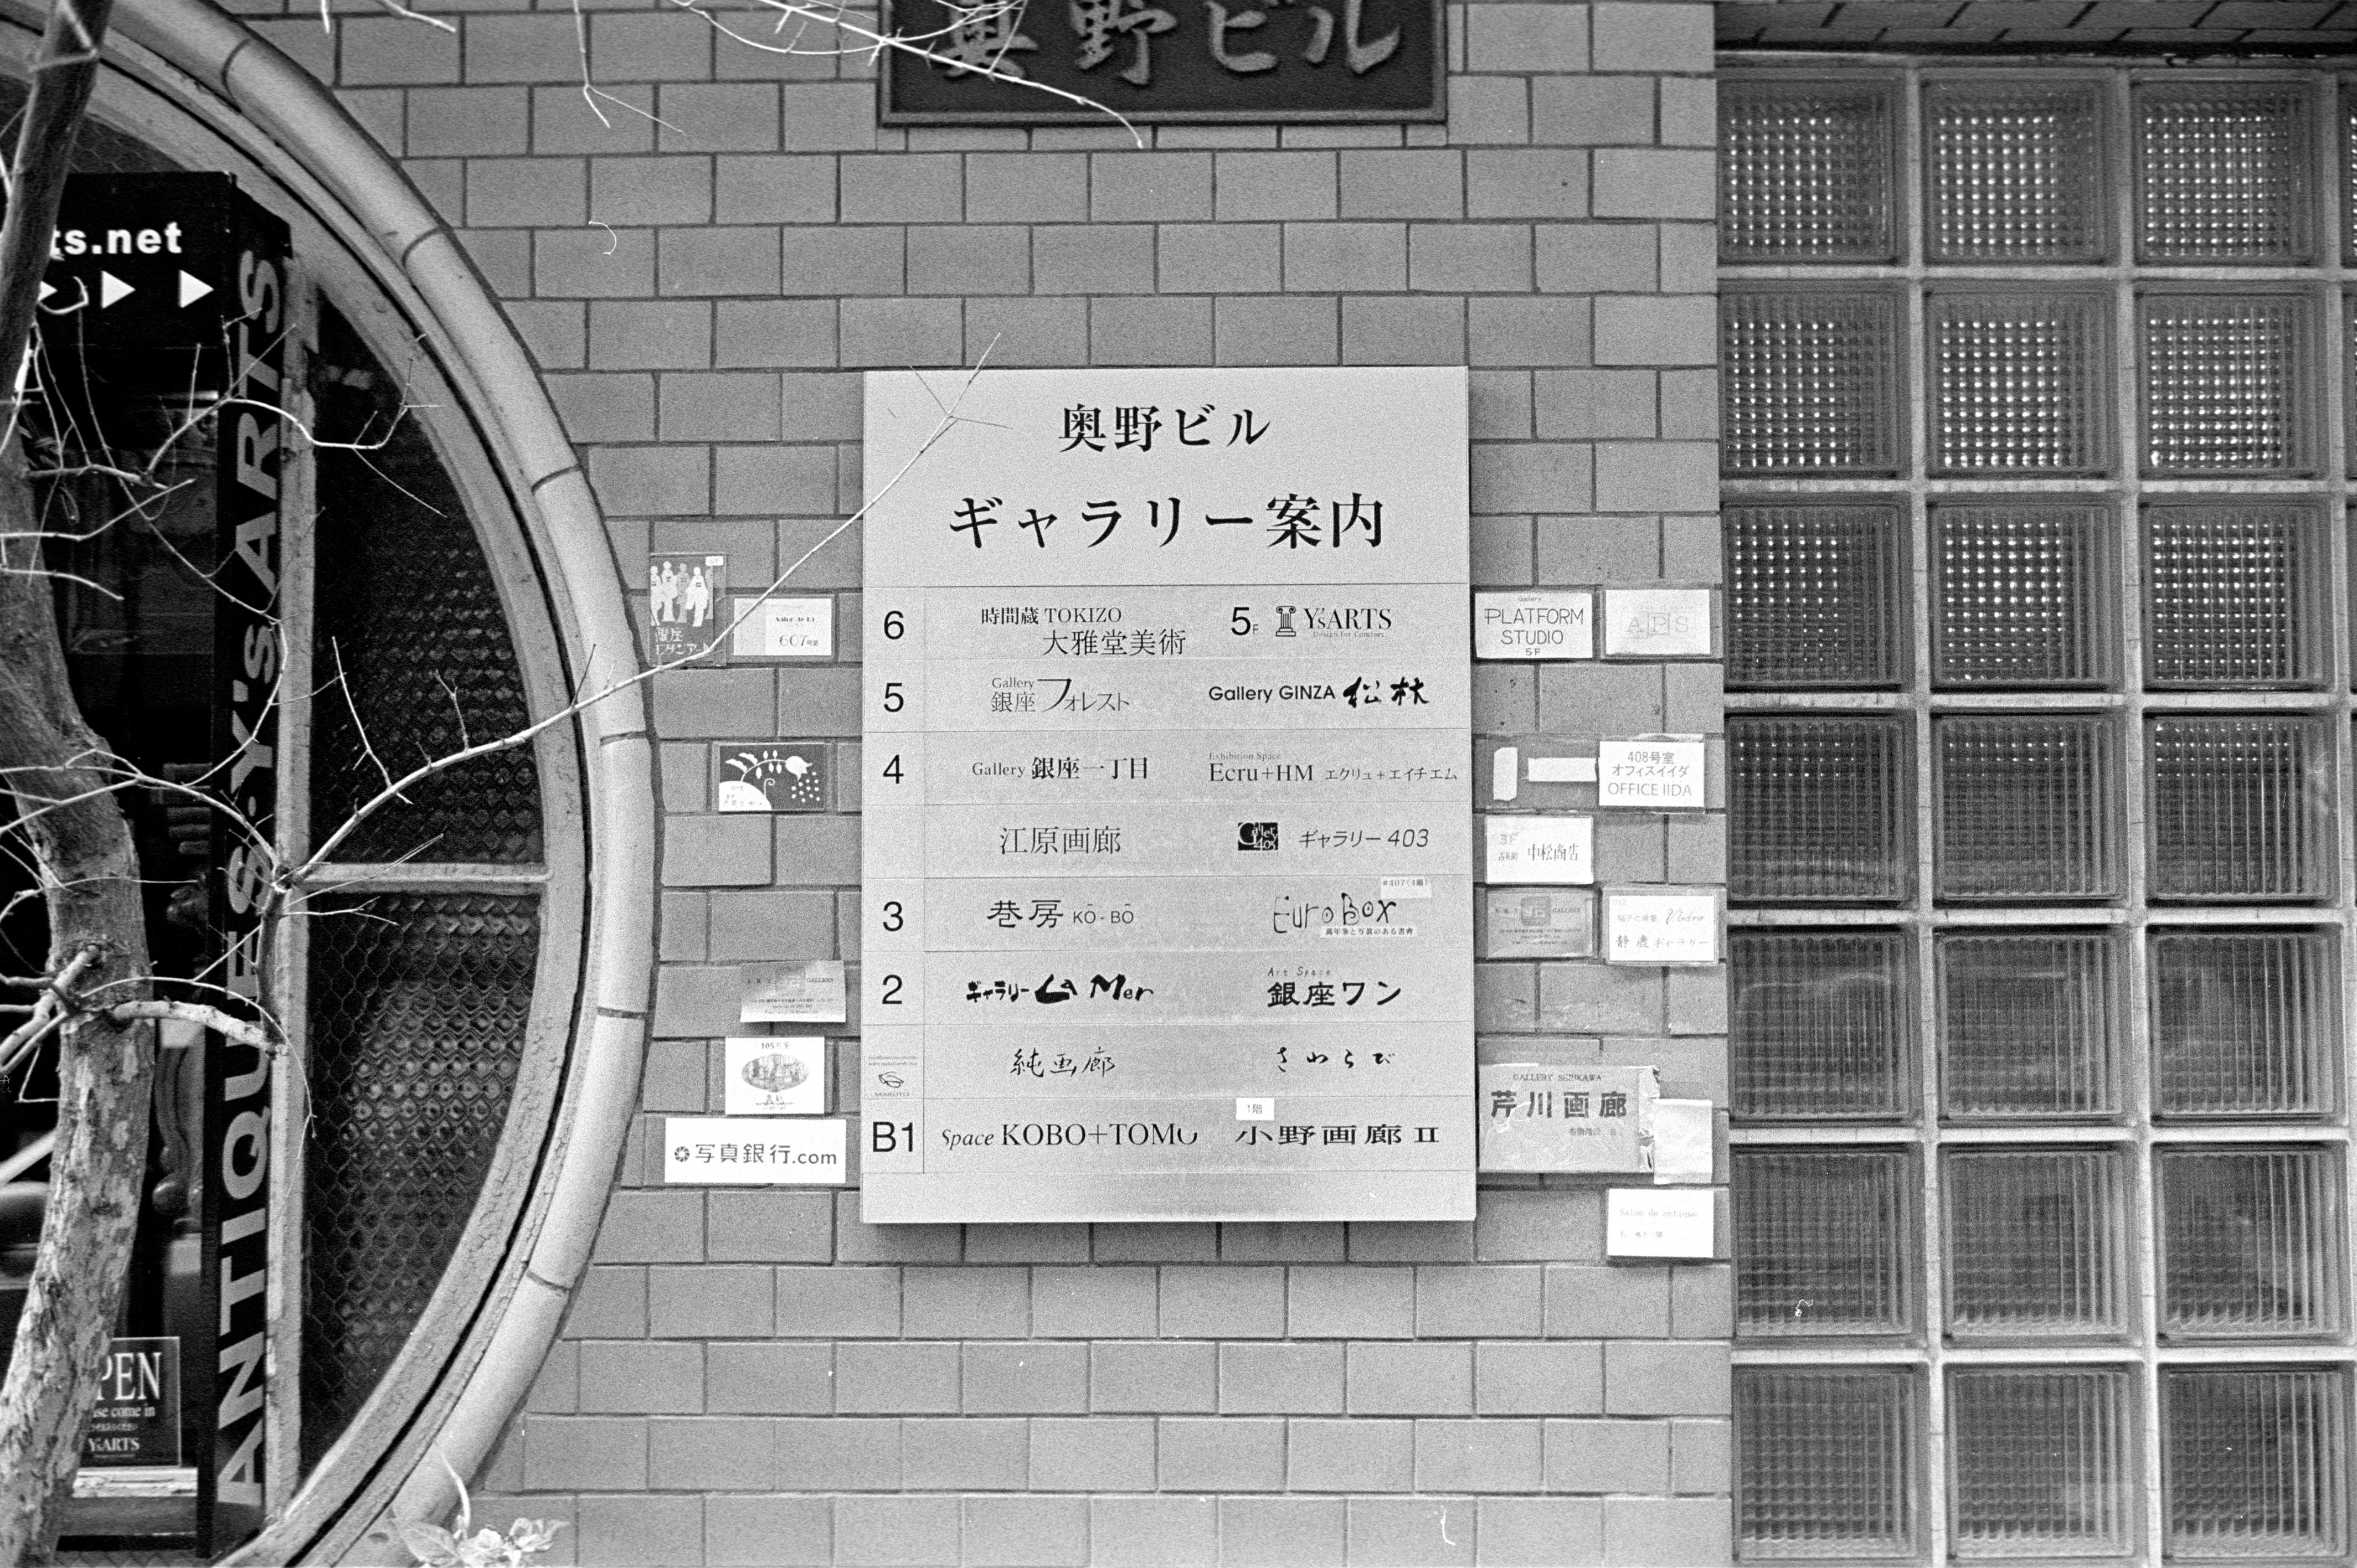 奥野ビル
ts.net
ANTIQUES·Y's ARTS
PEN
se come in
Y'sARTS
奥野ビル
ギャラリー案内
6 時間蔵 TOKIZO 大雅堂美術
5F Y'sARTS
Design for Comfort
5 Gallery 銀座フォレスト
Gallery GINZA 松林
4 Gallery 銀座一丁目
Exhibition Space
Ecru+HM エクリュ+エイチエム
江原画廊
Gallery 403 ギャラリー 403
#407(4階)
3 巷房 KŌ-BŌ
Euro Box
萬年筆と写真のある書斎
2 ギャラリー La Mer
Art Space
銀座ワン
純画廊
さわらび
MAKOTO
1階
B1 Space KOBO+TOMO
小野画廊 II
銀座
607号室
105号室
GALLERY
写真銀行.com
Gallery
PLATFORM
STUDIO
5F
APS
408号室
オフィスイイダ
OFFICE IIDA
3F
中松商店
GALLERY
ギャラリー
GALLERY SERIKAWA
芹川画廊
Salon de antique